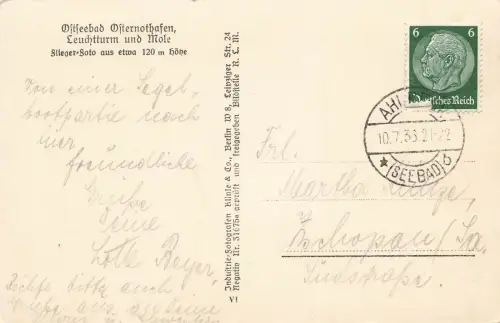 Ostseebad Osternothafen,
Leuchtturm und Mole
Flieger-Foto aus etwa 120 m Höhe
Von einer Segel-
bootpartie nach
hier
freundliche
Grüße
Deine
Lotte Beyer,
Bitte auch
Grüße aus
Industrie-Fotografen Klinke & Co., Berlin W 8, Leipziger Str. 24
Negativ Nr. 31678a geprüft und freigegeben Bildstelle R. L. M.
V1
6 6
Deutsches Reich
AHL
10.7.36 21-22
(SEEBAD) d
Frl.
Martha
Zschopau/Sa.
Südstraße